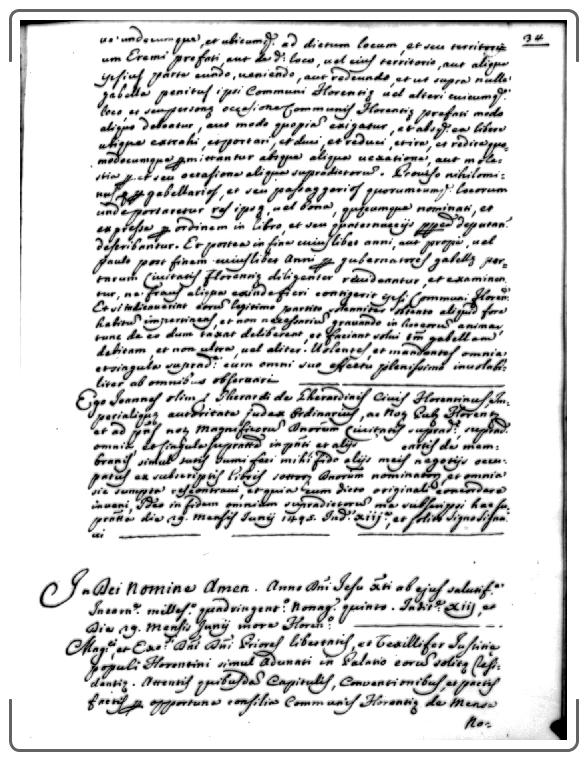 34
undecumque, et ubicumq. ad dictum locum, et seu territori
um Eremi prefati, aut de d.o loco, vel eius territorio, aut aliqua
ipsius parte eundo, veniendo, aut redeundo, et ut supra nulla
gabella penitus ipsi Communi Florentię vel alteri cuicumq.
loco et seu personę occasione Communis Florentię prefati modo
aliquo debeatur, aut modo quopiam exigatur, et absq. ea libere
utique extrahi, et portari, et duci, et reduci, et ire, et redire quo-
modocumque permittantur absque aliqua vexatione, aut mole-
stia et seu occasione aliqua supradictorum. Proviso nihilomi-
nus gabellarios, et seu passaggerios quorumcumq. locorum
unde portaretur res ipsę, vel bona, quęcumque nominati, et
expresse ordinem in libro, et seu quaternuccijs deputan
describantur. Et postea in fine cuiuslibet anni, aut prope, vel
paulo post finem cuiuslibet Anni gubernatores gabellę por-
tarum Civitatis Florentię diligenter revideantur, et examinen
tur, ne fraus aliqua exinde fieri contigerit ipsi Communi Floren.
Et si iudicaverint eorum legitimo partito obtento aliquid fore
habitum impertinens, et non necessarium gravando in hoc eorum animas
tunc de eo dum taxat deliberent, et faciant solvi gabellam
debitam, et non ultra, vel aliter. Volentes, et mandantes omnia
et singula suprad. cum omni suo effectu plenissime inviolabi-
liter ab omnibus observari
Ego Joannes olim Gherardi de Gherardinis Civis Florentinus, Im-
perialique auctoritate judex Ordinarius, ac Not. Pub. Florent.
et ad not. Magnificorum Dnorum Civitatis suprad.
omnia et singula in et alijs cartis de mem-
branis simul sutis sumi feci mihi fido alijs meis negotijs occu-
patus ex subscriptis libris Dnorum nominator. et omnia
sic sumpta rescontravi, et quia cum dicto originali concordare
inveni, Ideo in fidem omnium supradictorum me subscripsi hac su-
die 29. Mensis Junij 1495. Ind. xiij, et solito signo signa
vi
In Dei Nomine Amen. Anno Dni Jesu Xti ab ejus salutif.
Incarn. milles. quadringent. Nonag. quinto. Indit. xiij, et
Die 29. Mensis Junij more Floren.
Mag. et Exc. Dni Dni Priores libertatis, et Vexillifer Justitie
populi Florentini simul Adunati in Palatio eorum solitę Resi-
dentię. Attentis quibusdam Capitulis, Conventionibus, et pactis
factis opportuna consilia Communis Florentię de Mense
No-